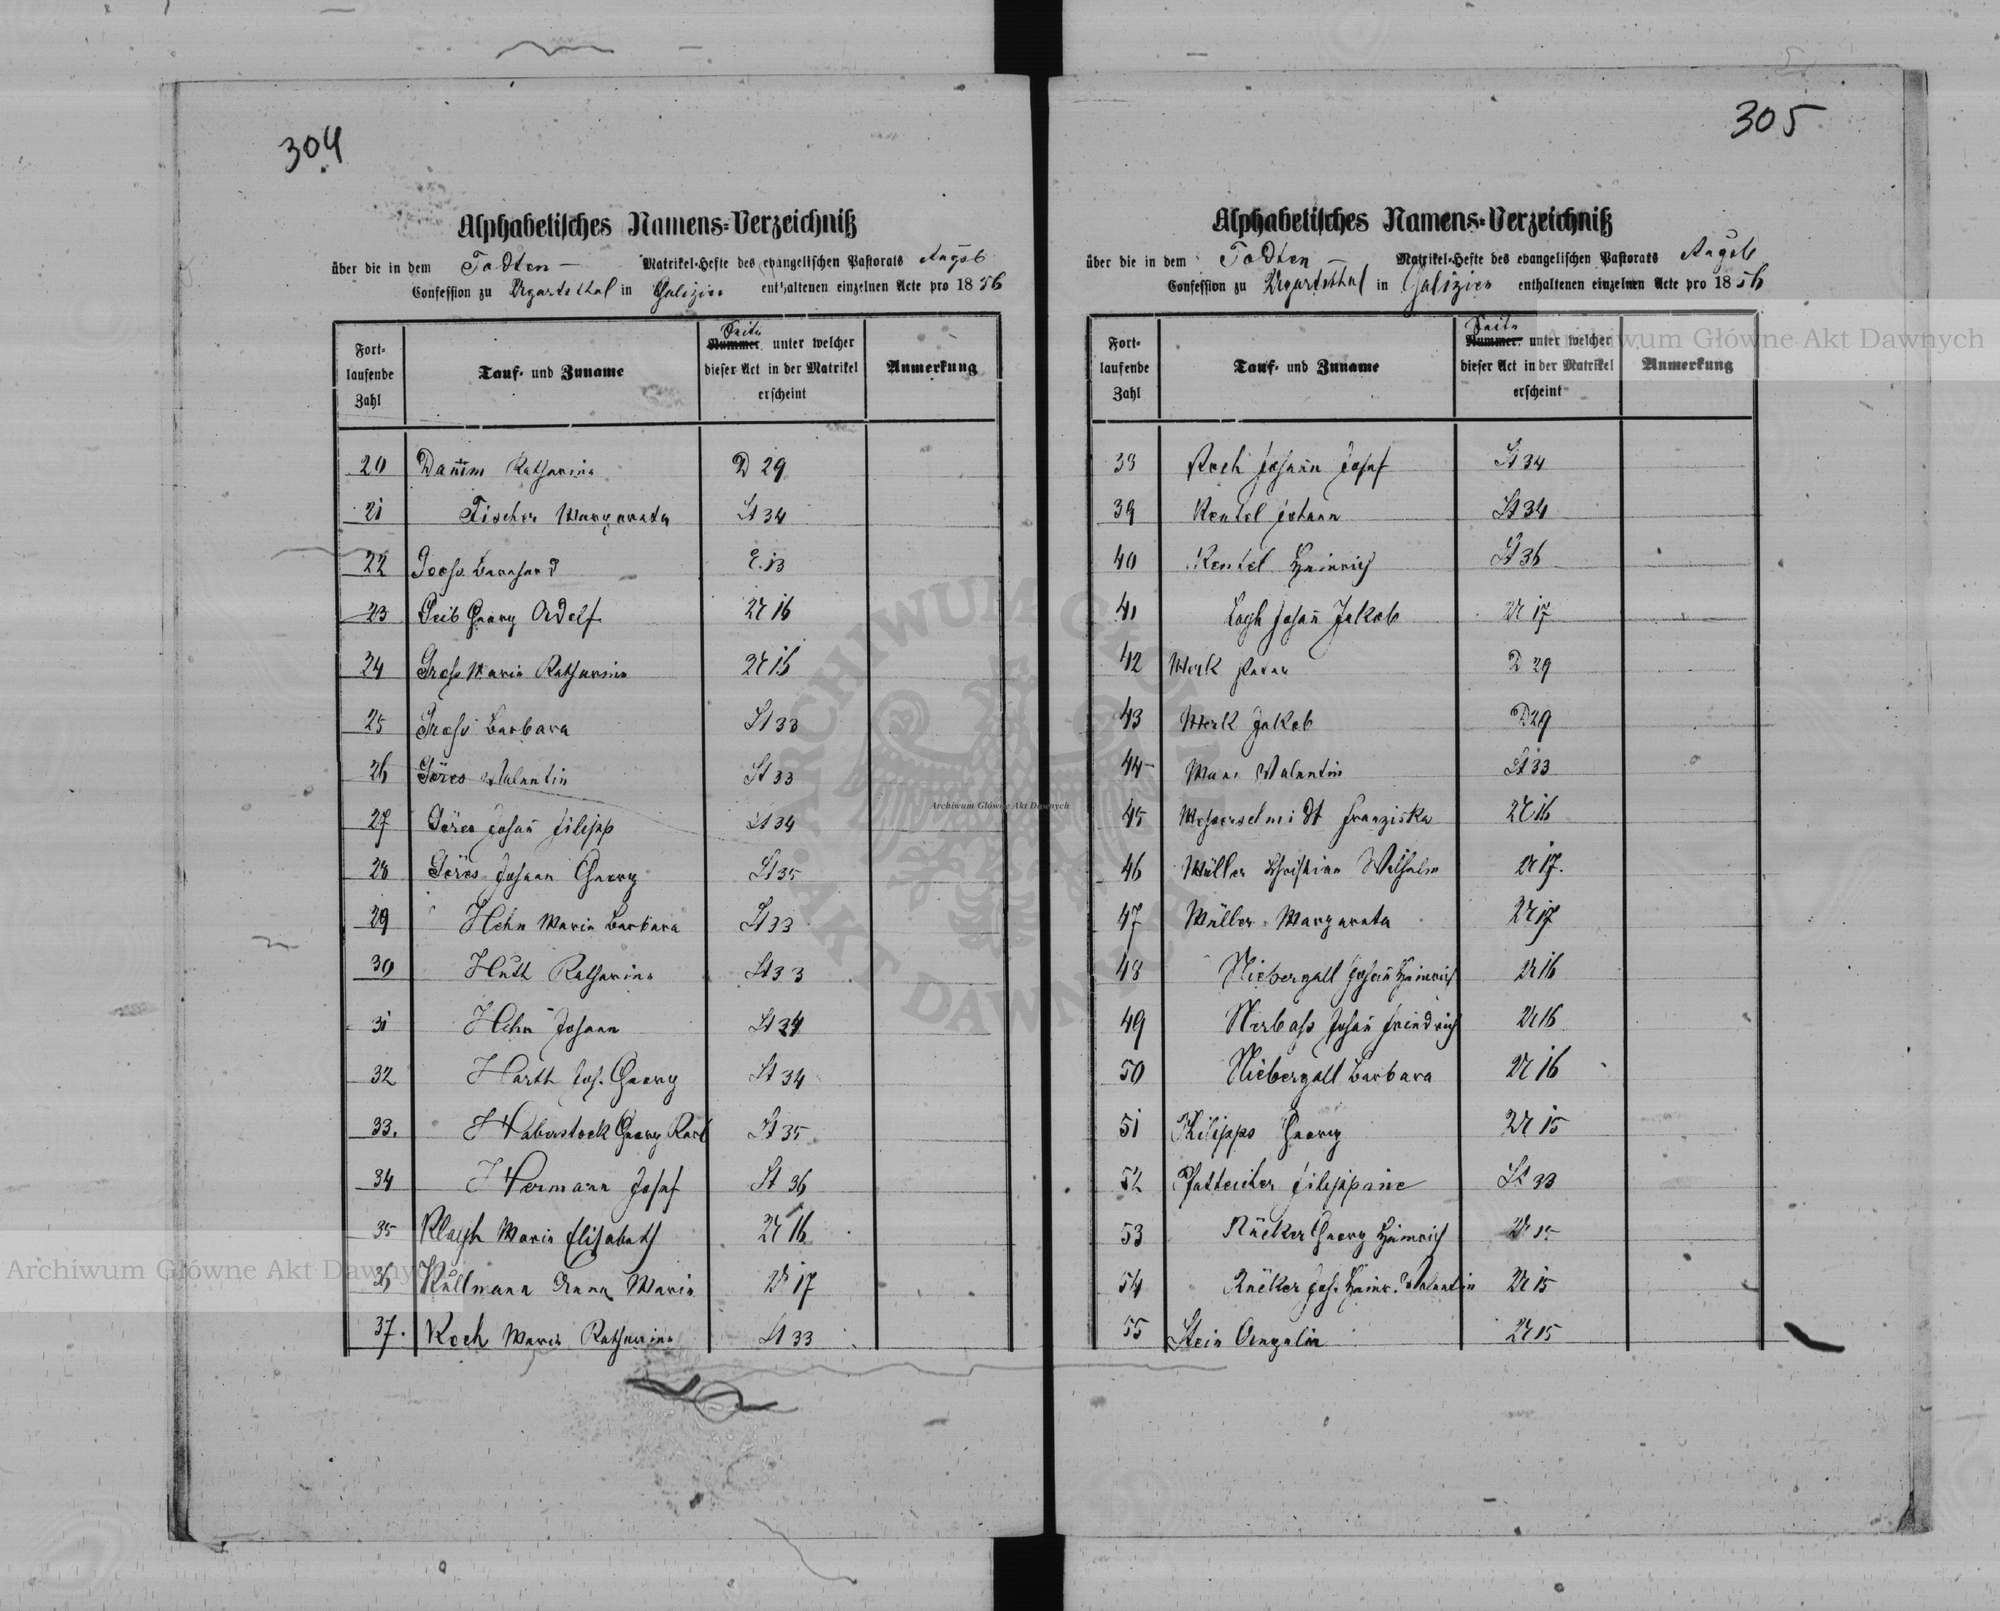 304
Alphabetisches Namens-Verzeichniß
über die in dem Todten Matrikel-Hefte des evangelischen Pastorats Augsb
Confession zu Ugartsthal in Galizien enthaltenen einzelnen Acte pro 1856
Fortlaufende Zahl
Tauf- und Zuname
Seite
Nummer unter welcher dieser Act in der Matrikel erscheint
Anmerkung
20 Damm Katharina D 29
21 Fischer Margareta St 34
22 Bernhard E. 13
23 Georg Adolf U 16
24 Gross Maria Katharina U 16
25 Gross Barbara St 33
26 Göres Valentin St 33
27 Göres Johann Filipp St 34
28 Göres Johann Georg St 35
29 Hehn Maria Barbara St 33
30 Huth Katharina St 33
31 Hehn Johann St 34
32 Harth Joh. Georg St 34
33. Haberstock Georg Karl St 35
34 Hermann Josef St 36
35 Maria Elisabeth U 16
36 Kullmann Anna Maria U 17
37. Koch Maria Katharina St 33
305
Alphabetisches Namens-Verzeichniß
über die in dem Todten Matrikel-Hefte des evangelischen Pastorats Augsb
Confession zu Ugartsthal in Galizien enthaltenen einzelnen Acte pro 1856
Fortlaufende Zahl
Tauf- und Zuname
Seite
Nummer unter welcher dieser Act in der Matrikel erscheint
Anmerkung
38 Koch Johann Josef St 34
39 Kentel Johann St 34
40 Kentel Heinrich St 36
41 Johann Jakob U 17
42 Merk Peter D 29
43 Merk Jakob D 29
44 Valentin St 33
45 Messerschmidt Franziska U 16
46 Müller Christian Wilhelm U 17.
47 Müller Margareta U 17
48 Niebergall Johann Heinrich U 16
49 Nerbass Johann Friedrich U 16
50 Niebergall Barbara U 16
51 Philipps Georg U 15
52 Pfatteicher Filippine St 33
53 Rücker Georg Heinrich U 15
54 Rücker Joh. Heinr. Valentin U 15
55 Stein U 15
Archiwum Główne Akt Dawnych
Archiwum Główne Akt Dawnych
Archiwum Główne Akt Dawnych
ARCHIWUM GŁÓWNE
AKT DAWNYCH